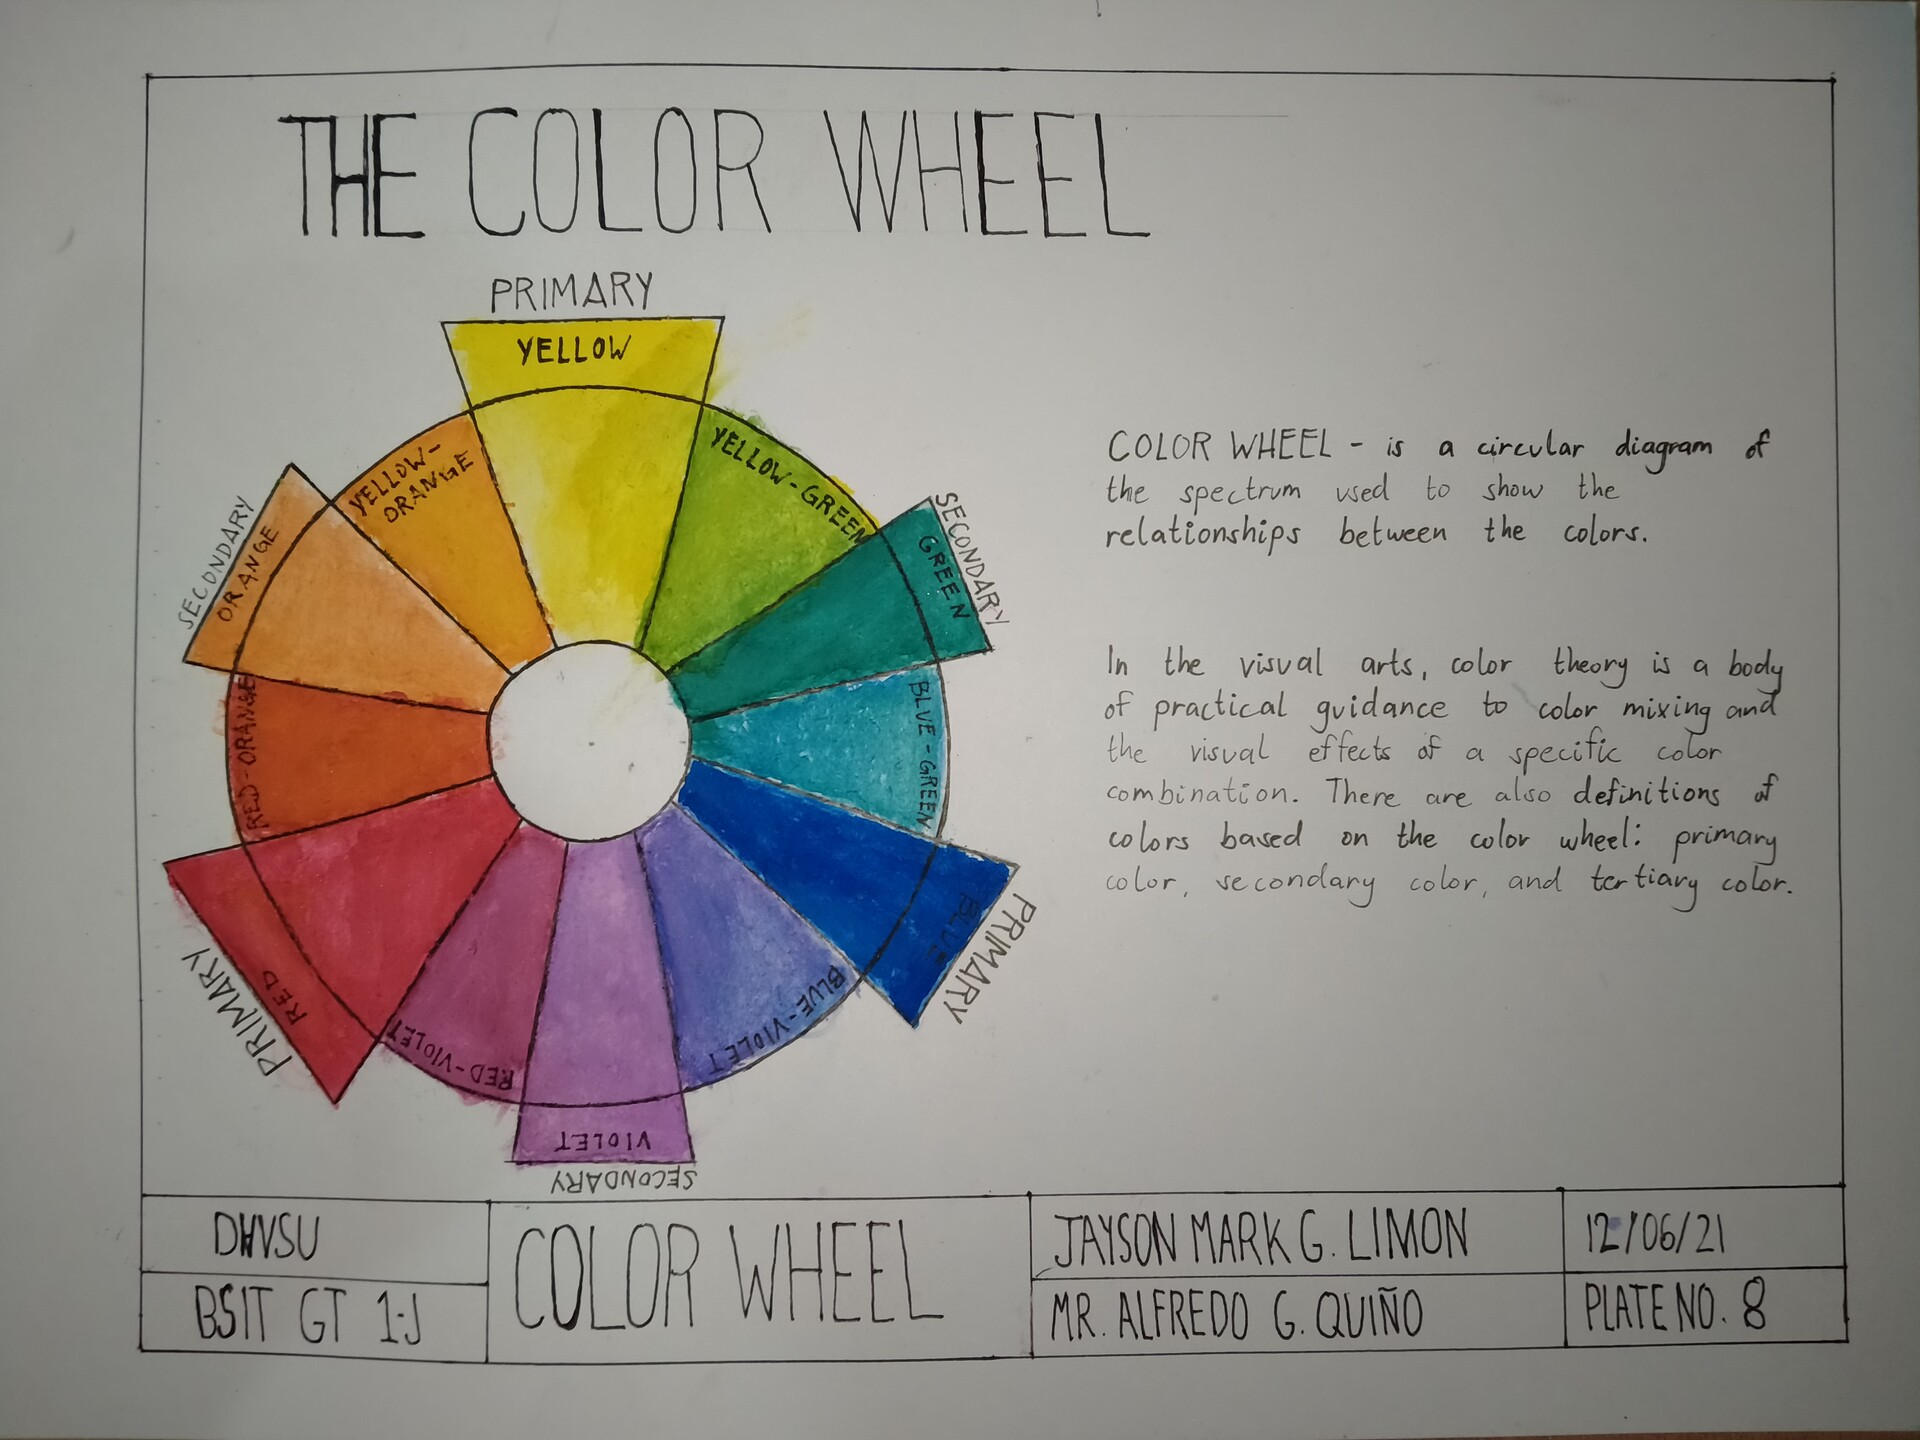 THE COLOR WHEEL
PRIMARY
YELLOW
YELLOW-
ORANGE
YELLOW-GREEN
SECONDARY
ORANGE
SECONDARY
GREEN
RED-ORANGE
BLUE-GREEN
PRIMARY
RED
PRIMARY
BLUE
RED-VIOLET
BLUE-VIOLET
VIOLET
SECONDARY
COLOR WHEEL - is a circular diagram of
the spectrum used to show the
relationships between the colors.
In the visual arts, color theory is a body
of practical guidance to color mixing and
the visual effects of a specific color
combination. There are also definitions of
colors based on the color wheel: primary
color, secondary color, and tertiary color.
DHVSU
BSIT GT 1-J
COLOR WHEEL
JAYSON MARK G. LIMON
MR. ALFREDO G. QUIÑO
12/06/21
PLATE NO. 8